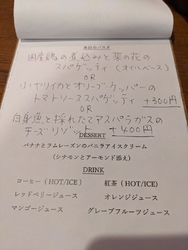 本日のパスタ
国産鶏の煮込みと菜の花の
スパゲッティ(オイルベース)
OR
小ヤリイカとオリーブ・ケッパーの
トマトソーススパゲッティ +300円
OR
白身魚と採れたてアスパラガスの
チーズリゾット +400円
DESSERT
バナナとラムレーズンのバニラアイスクリーム
(シナモンとアーモンド添え)
DRINK
コーヒー(HOT/ICE) 紅茶(HOT/ICE)
レッドベリージュース オレンジジュース
マンゴージュース グレープフルーツジュース